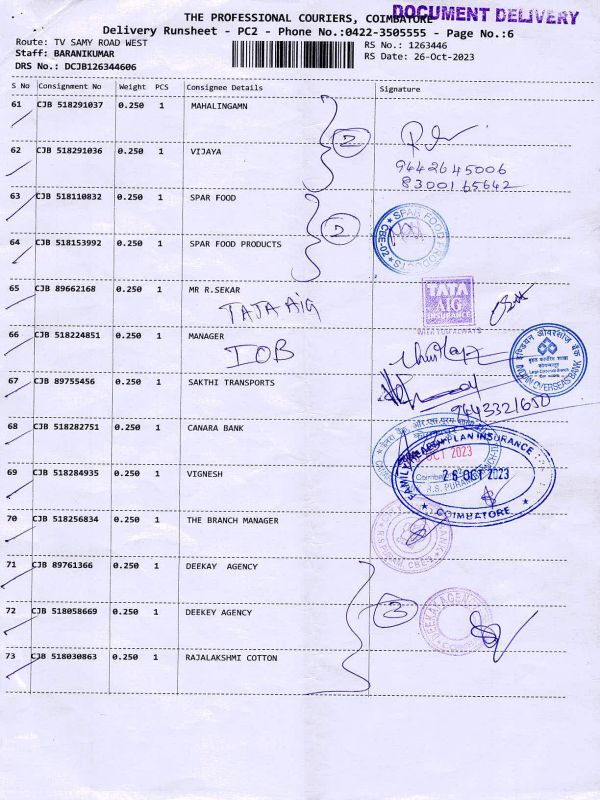 DOCUMENT DELIVERY
THE PROFESSIONAL COURIERS, COIMBATORE
Delivery Runsheet - PC2 - Phone No.:0422-3505555 - Page No.:6
Route: TV SAMY ROAD WEST RS No.: 1263446
Staff: BARANIKUMAR RS Date: 26-Oct-2023
DRS No.: DCJB126344606
S No Consignment No Weight PCS Consignee Details Signature
61 CJB 518291037 0.250 1 MAHALINGAMN
2
62 CJB 518291036 0.250 1 VIJAYA
9442645006
8300165642
63 CJB 518110832 0.250 1 SPAR FOOD
2
SPAR FOOD PRODUCTS CBE-02
64 CJB 518153992 0.250 1 SPAR FOOD PRODUCTS
65 CJB 89662168 0.250 1 MR R.SEKAR
TATA AIG
TATA
AIG
INSURANCE
WITH YOU ALWAYS
66 CJB 518224851 0.250 1 MANAGER
IOB
इण्डियन ओवरसीज़ बैंक
INDIAN OVERSEAS BANK
67 CJB 89755456 0.250 1 SAKTHI TRANSPORTS
9443321650
68 CJB 518282751 0.250 1 CANARA BANK
FAMILY HEALTH PLAN INSURANCE
OCT 2023
26 OCT 2023
COIMBATORE
69 CJB 518284935 0.250 1 VIGNESH
70 CJB 518256834 0.250 1 THE BRANCH MANAGER
71 CJB 89761366 0.250 1 DEEKAY AGENCY
72 CJB 518058669 0.250 1 DEEKEY AGENCY
3
DEEKAY AGENCY
73 CJB 518030863 0.250 1 RAJALAKSHMI COTTON